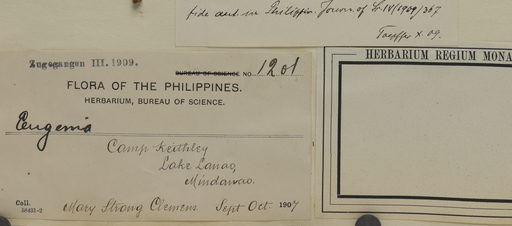 fide auct in Philippin. Journ. of Sc. IV/1909/367
Toepffer X. 09.
Zugegangen III. 1909.
BUREAU OF SCIENCE NO. 1201
FLORA OF THE PHILIPPINES.
HERBARIUM, BUREAU OF SCIENCE.
Eugenia
Camp Keithley
Lake Lanao,
Mindanao.
Coll.
58432-2
Mary Strong Clemens. Sept Oct 1907
HERBARIUM REGIUM MONA